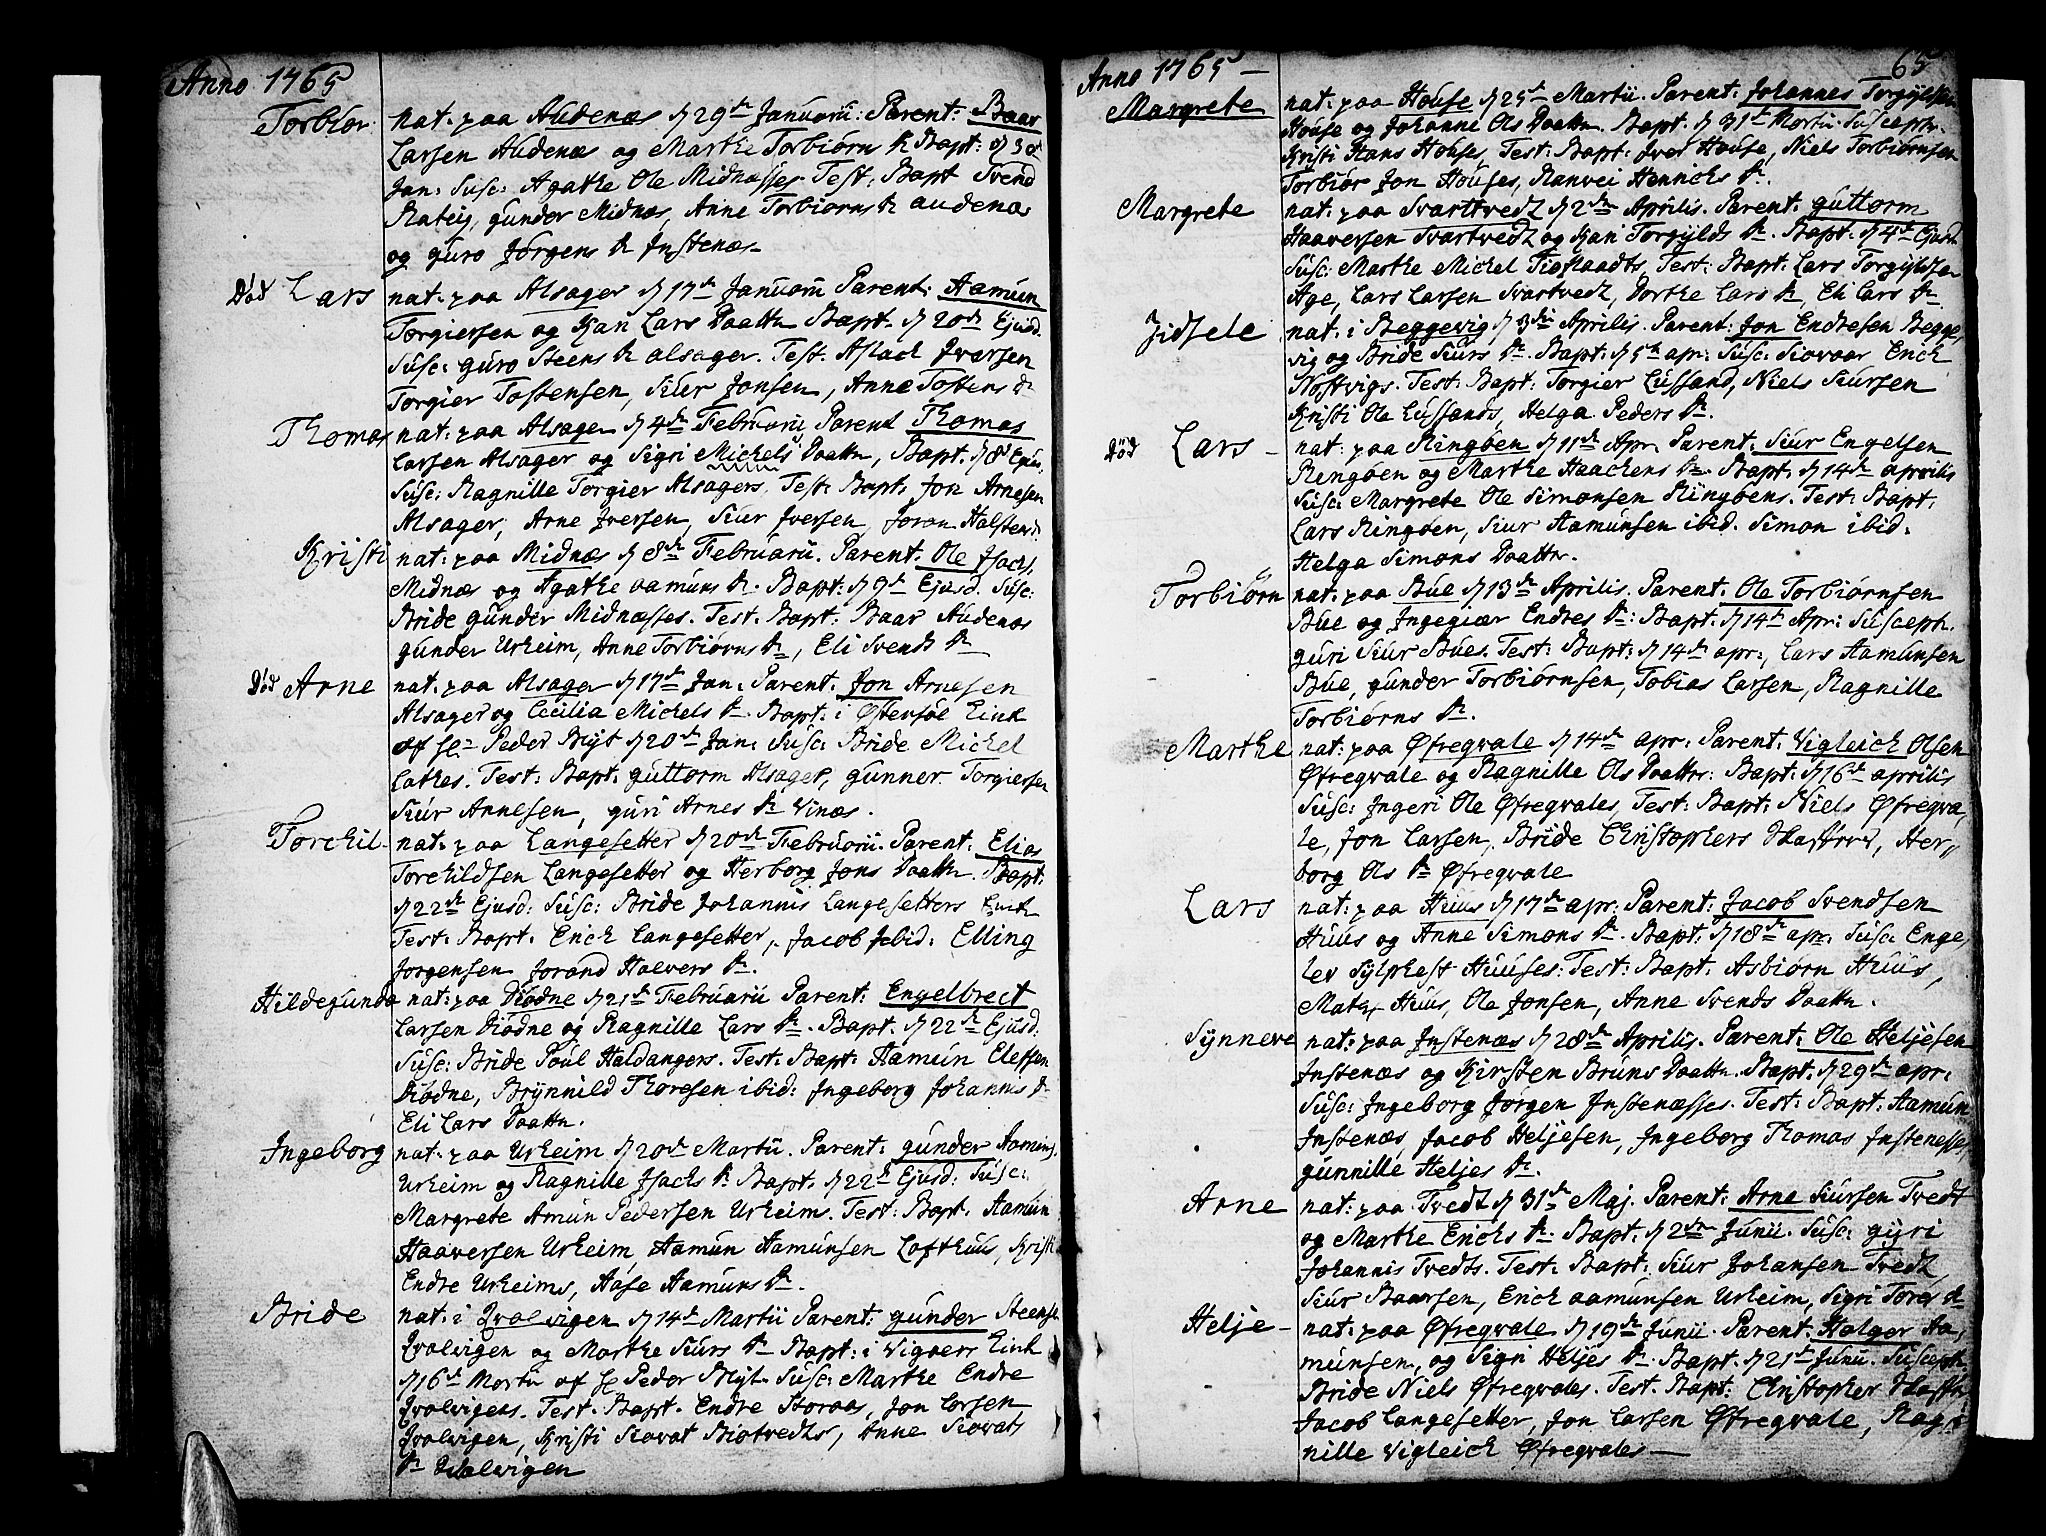 Anno 1765
Torbiør nat: paa Audenæs d 29de Januarii: Parent: Baar
Larsen Audenæs og Marthe Torbiørns Dr Bapt: d 30d
Jan: Susc: Agathe Ole Midnæsses Test: Bapt Svend
Rateig, gunder Midnæs, Anne Torbiørns Dr audenæs
og guro Jørgens Dr Jnstenæs
Død Lars nat: paa Alsager d 17de Januarii Parent: Aamun
Torgiersen og Kari Lars Daatter Bapt. d 20de Ejusd.
Susc: guro Steens Dr alsager. Test. Aslach Jversen
Torgier Tostensen, Siur Jonsen, Anne Tostens Dr
Thomas nat: paa Alsager d 4de Februarii Parent Thomas
Larsen Alsager og Sigri Michels Daatter, Bapt. d 8d Ejus.
Susc: Ragnille Torgier Alsagers. Test: Bapt: Jon Arnesen
Alsager, Arne Jversen, Siur Jversen, Joran Halstens
Kristi nat: paa Midnæs d 8de Februarii. Parent: Ole Jsachs.
Midnæs og Agathe aamuns Dr. Bapt: d 9d Ejusd. Susc:
Bride gunder Midnæsses. Test. Bapt: Baar Audenæs
gunder Urheim, Anne Torbiørns Dr, Eli Svends Dr
Død Arne nat: paa Alsager d 17de Jan: Parent: Jon Arnesen
Alsager og Cecilia Michels Dr. Bapt: i Østensøe Kirk
af Hr Peder Blyt d 20de Jan: Susc: Bride Michel
Lathes. Test: Bapt: guttorm Alsager, gunner Torgiersen
Siur Arnesen, guri Arnes Dr Vinæs.
Torchil nat: paa Langesetter d 20de Februarii. Parent: Elias
Torchildsen Langesetter og Herborg Jons Daatter. Bapt:
d 22de Ejusd: Susc: Bride Johannis Langesetters
Test: Bapt: Erich Langesetter, Jacob Jbid: Elling
Jorgensen Jorand Halvers Dr.
Hildegunda nat: paa Diødne d 21de Februarii Parent: Engelbrect
Larsen Diødne og Ragnille Lars Dr. Bapt. d 22de Ejusd.
Susc: Bride Poul Haldangers. Test: Bapt: Aamun Elefsen
Diødne, Brynnild Thoresen ibid: Ingeborg Johannis Dr
Eli Lars Daatter.
Jngeborg nat: paa Urheim d 20de Martii. Parent: gunder Aamuns.
Urheim og Ragnille Jsachs Dr Bapt. d 22d Ejusd: Susc:
Margrete Amun Pedersen Urheims. Test: Bapt. Aamun
Haaversen Urheim, Aamun Aamunsen Lofthuus, Kristi
Endre Urheims, Aase Aamuns Dr.
Bride nat: i Qvalvigen d 14de Martii Parent: gunder Steens.
Qvalvigen og Marthe Siurs Dr Bapt: i Vigøers Kirk
d 16d Martii af Hr Peder Blyt. Susc: Marthe Endre
Qvalvigens. Test. Bapt. Endre Storaas, Jon Larsen
Qvalvigen, Kristi Siovat Biotvedts, Anne Siovats
Dr Qvalvigen
Anno 1765
65
Margrete nat: paa House d 25de Martii. Parent: Johannes Torgyldsen
House og Johanne Ols Daatter. Bapt. d 31te Martii. Susceptr.
Kristi Hans Houses, Test: Bapt: Jver House, Niels Torbiørnsen
Torbiør Jon Houses, Ranvei Henrichs Dr.
Margrete nat: paa Svartvedt d 2den Aprilis. Parent: guttorm
Haaversen Svartvedt og Kari Torgylds Dr. Bapt: d 4de Ejusd.
Susc: Marthe Michel Tioflaadts, Test: Bapt: Lars Torgyldsen
Age, Lars Larsen Svartvedt, Dorthe Lars Dr, Eli Lars Dr
Zidsele nat: i Beggevig d 3die Aprilis. Parent: Jon Endresen Begge,
vig og Bride Siurs Dr. Bapt: d 5te apr: Susc: Siovaar Erich
Nostvigs. Test: Bapt: Torgier Lussand, Niels Siursen
Kristi Ole Lussands, Helga Peders Dr.
Død Lars nat: paa Ringøen d 11de Apr: Parent: Siur Engelsen
Ringøen og Marthe Haachens Dr. Bapt. d 14de aprilis
Susc: Margrete Ole Simonsen Ringøens. Test: Bapt:
Lars Ringøen, Siur Aamunsen ibid. Simon ibid:
Helga Simons Daatter.
Torbiørn nat: paa Bue d 13de Aprilis. Parent: Ole Torbiørnsen
Bue og Jngegiær Endres Dr: Bapt. d 14de Apr: Susceptr.
guri Siur Bues. Test: Bapt: d 14de apr:, Lars Aamunsen
Bue, gunder Torbiørnsen, Tobias Larsen, Ragnille
Torbiørns Dr.
Marthe nat: paa Øfregvale d 14de apr: Parent: Vigleich Olsen
Øfregvale og Ragnille Ols Daatter: Bapt: d 16de aprilis
Susc: Jngeri Ole Øfregvales, Test: Bapt: Niels Øfregva,
le, Jon Larsen, Bride Christophers Dr, Her,,
borg Ols Dr Øfregvale
Lars nat: paa Huus d 17de apr: Parent: Jacob Svendsen
Huus og Anne Simons Dr. Bapt: d 18de apr: Susc: Enge,
lev Sylphest Huuses: Test: Bapt. Asbiørn Huus,
Mats, Huus, Ole Jonsen, Anne Svends Daatter.
Synneve nat: paa Jnstenæs d 28de Aprilis. Parent: Ole Heljesen
Jnstenæs og Kirsten Bruns Daatter. Bapt. d 29de apr:
Susc: Jngeborg Jorgen Jnstenæsses. Test: Bapt: Aamun
Jnstenæs, Jacob Heljesen, Jngeborg Thomas Jnstenesses
gunnille Heljes Dr.
Arne nat: paa Tvedt d 31te Maj. Parent: Arne Siursen Tvedt
og Marthe Erichs Dr: Bapt: d 2den Junii. Susc: gyri
Johannis Tvedts. Test: Bapt: Siur Johansen Tvedt
Siur Baarsen, Erich aamunsen Urheim, Sigri Tores Dr
Helje nat: paa Øfregvale d 19de Junii. Parent: Halger Aa,
munsen, og Sigri Heljes Dr. Bapt. d 21de Junii. Susceptr.
Bride Niels Øfregvales. Test. Bapt: Christopher
Jacob Langesetter, Jon Larsen Øfregvale, Rag,
nille Vigleich Øfregvales